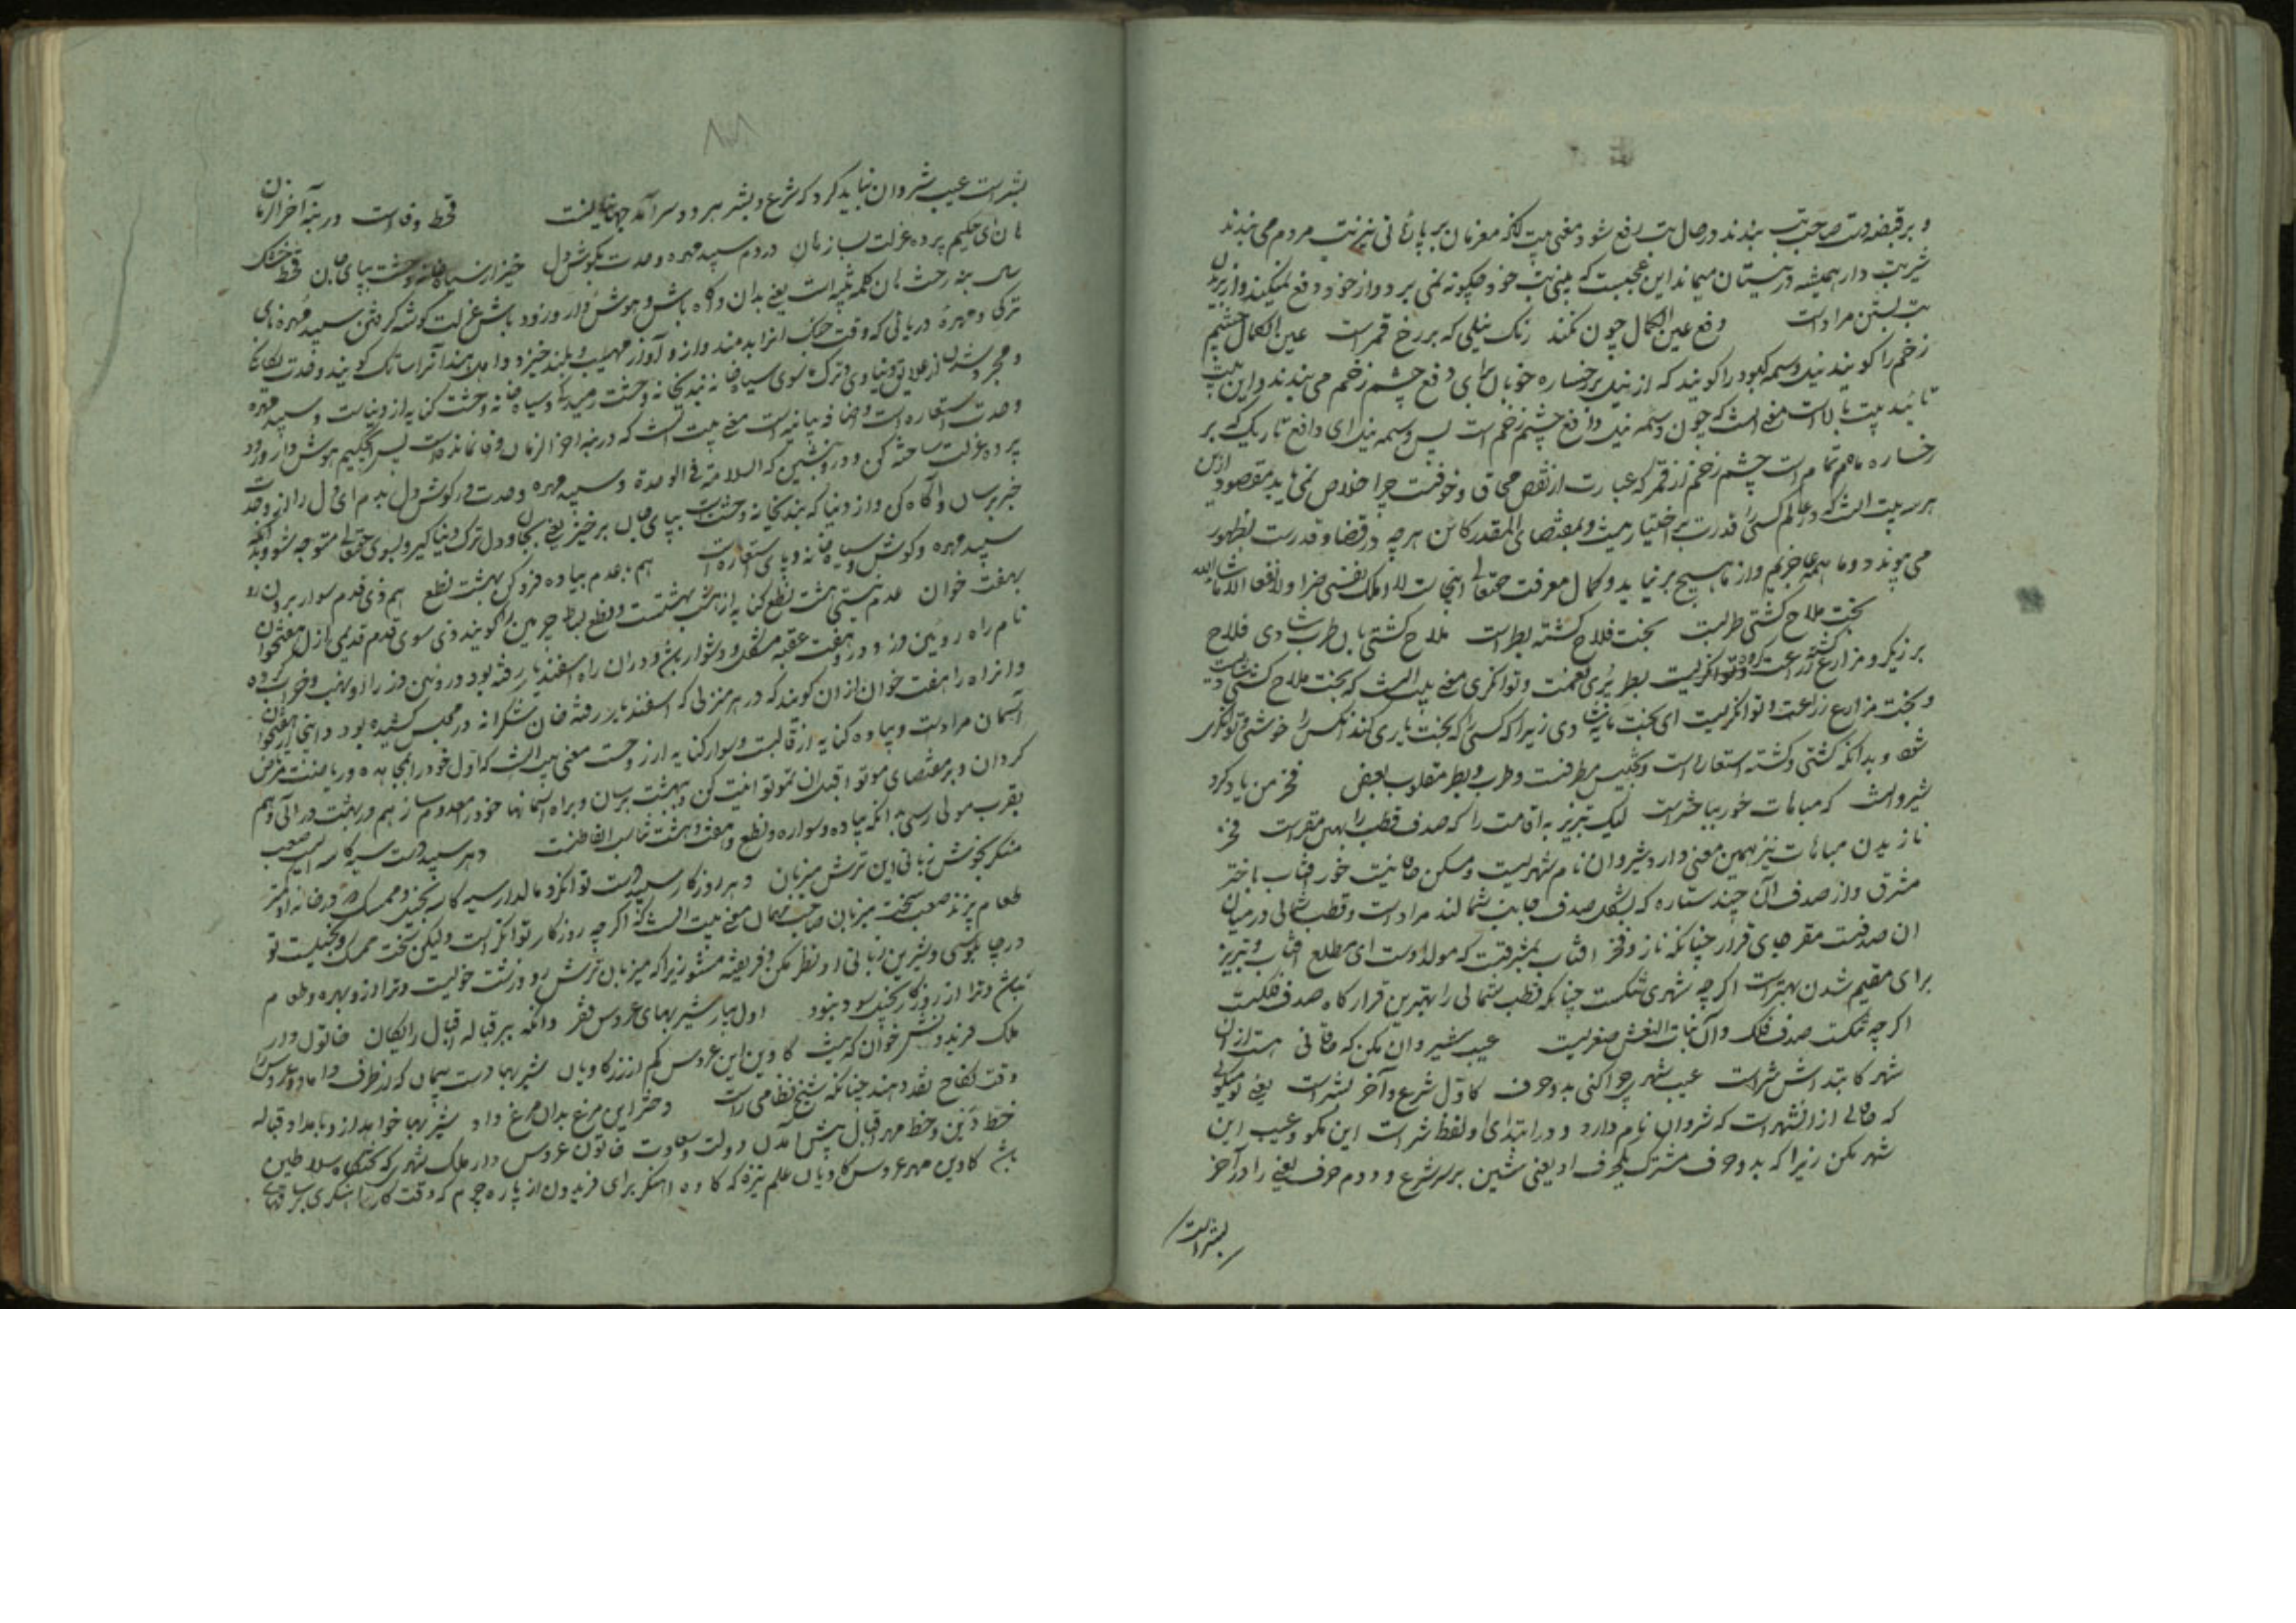 و بر قبضه دست صاحب تب بندند در حال تب رفع شود و معنی بیت آنکه مغزمان بر پای نی نیز تب مردم می بندند
شیر تب دار همیشه در نیستان میماند این عجبست که یعنی تب خود چگونه نمی برد و از خود دفع نمیکند و از بریدن
تب بستن مراد است دفع عین الکمال چون نکند رنگ نیلی که بر رخ قمر است عین الکمال چشم
زخم را گویند نیل وسمه کبود را گویند که از نیل بر رخساره خوبان برای دفع چشم زخم می بندند و این بیت
تائید بیت بالاست معنی آنست که چون وسمه نیل دافع چشم زخم است پس وسمه نیل ای دافع تاریک که بر
رخساره ماهم تمام است چشم زخم از قمر که عبارت از نقص محاق و خوفست چرا خلاص نمی یابد مقصود ازین
هر سه بیت آنست که در عالم کسی را قدرت بر اختیار نیست و بمقتضای المقدر کائن هر چه در قضا و قدرست بظهور
می پیوندد و ما همه عاجزیم و از ما هیچ بر نیاید و کمال معرفت حق تعالی اینجاست لا املک لنفسی ضرا و لا نفعا الا ماشاء الله
بخت ملاح کشتی طربست بخت فلاح کشته بطر است ملاح کشتی بان طرب شادی فلاح
برزیگر و مزارع کشته زراعت کرده و توانگریست بطر پری نعمت و توانگری معنی بیت آنست که بخت ملاح کشتی شادیست
و بخت مزارع زراعت و توانگریست ای بخت مایه شادی زیرا که کسی را که بخت یاری کند آنکس را خوشی و توانگری
شود و بدانکه کشتی و کشته استعارات و تجنیس مطرفست و طرب و بطر مقلوب بعض فخر من یاد کرد
شیروانست که مباهات خور بباختر است لیک تبریز به اقامت را که صدف قطب را بهین مقر است فخر
نازیدن مباهات نیز همین معنی دارد شیروان نام شهریست و مسکن خاقانیست خور آفتاب باختر
مشرق و از صدف آن چند ستاره که بشکل صدف جانب شمالند مراد است و قطب شمالی در میان
آن صدفست مقر جای قرار چنانکه ناز و فخر آفتاب بمشرقست که مولد اوست ای مطلع آفتاب و تبریز
برای مقیم شدن بهتر است اگرچه شهری شکست چنانکه قطب شمالی را بهترین قرارگاه صدف فلکست
اگرچه شکست صدف فلک و آن بنات النعش صغریست عیب شیروان مکن که خاقانی هست از آن
شهر کابتداش شر است عیب شهری چرا کنی بدو حرف کاول شرع و آخر بشر است یعنی تو میگوئی
که خاقانی از آن شهر است که شروان نام دارد و در ابتدای او لفظ شر است این مگو و عیب این
شهر مکن زیرا که بدو حرف مشترک یکحرف او یعنی شین بر سر شرع و دوم حرف یعنی را در آخر
بشر است
بشر است عیب شروان نباید کرد که شرع و بشر هر دو سرآمد جهانیانست قحط وفاست در بنه آخر الزمان
هان ای حکیم پرده عزلت بساز هان در دم سپید مهره وحدت بگوش دل خیز از سیاه خانه وحشت بپای جان قحط خشک
سال بنه رخت هان کلمه تنبیه است یعنی بدان و آگاه باش و هوش دار و زود باش عزلت گوشه گرفتن سپید مهره نای
ترکی و مهره دریائی که وقت جنگ آنرا بدمند و از و آواز مهیب و بلند خیزد و اهل هند آنرا سانک گویند وحدت یگانگی
و مجرد شدن از علایق دنیاوی و ترک ماسوی سیاه خانه بندیخانه وحشت رمیدگی و سیاه خانه وحشت کنایه از دنیاست و سپید مهره
وحدت استعاره است و اضافه بیانیه است معنی بیت آنست که در بنه آخر الزمان وفا نمانده است پس ای حکیم هوش دار و زود
پرده عزلت ساخته کن و درو بنشین که السلامة فی الوحدة و سپید مهره وحدت در گوش دل بدم ای دل را از وحدت
خبر برسان و آگاه کن و از دنیا که بندیخانه وحشت است بپای جان بر خیز یعنی بجان و دل ترک دنیا گیر و بسوی حق تعالی متوجه شو و بدانکه
سپید مهره و گوش و سیاه خانه و پای استعاره است هم بعدم پیاده فرو کن بهشت نطع هم ذی قدم سوار برون رو
بهفت خوان عدم نیستی هشت نطع کنایه از هشت بهشتست و نطع بساط چرمین را گویند ذی سوی قدم قدیمی ازل هفتخوان
نام راه روئین دز و درو هفت عقبه مشکل و دشوار بیش و در آن راه اسفندیار رفته بود و روئین دز را نهب و خراب کرده
و آن راه را هفت خوان از آن گویند که در هر منزلی که اسفندیار رفته خان شکرانه در مجلس کشیده بود و اینجا از هفتخوان
آسمان مراد است و پیاده کنایه از قالبست و سوار کنایه از روحست معنی بیت آنست که اول خود را بمجاهده و ریاضت مرتاض
گردان و بر مقتضای موتوا قبل ان تموتوا نیست کن و بهشت برسان و براه آسمانها خود را معدوم ساز هم در بهشت در آئی و هم
بقرب مولی رسی بدانکه پیاده و سواره و نطع و هفت و هشت تناسب الفاظست دهر سپید دست سیه کاسه ایست صعب
منگر بخوش زبانی این ترش میزبان دهر روزگار سپید دست توانگر و مالدار سیه کاسه بخیل و ممسک که در خانه او کمتر
طعام پزند صعب سخت میزبان صاحب مهمان معنی بیت آنست که اگرچه روزگار توانگر است ولیکن سخت ممسک و بخیلست تو
در چاپلوسی و شیرین زبانی او نظر مکن و فریفته مشو زیرا که میزبان ترش رو و زشت خوئیست و ترا ازو بهره و طعام
نباشد و ترا از روزگار بخیل سود نبود اول بیار شیر بهای عروس فقر و آنگه ببر قباله اقبال رایگان خاتون دار
ملک فریدونش خوان که نیست کاوین این عروس کم از زر کاویان شیر بها دست پیمان که از طرف داماد عروس را
وقت نکاح نقد دهند چنانکه شیخ نظامی راست دختر این مرغ بدان مرغ داد شیر بها خواهد از و بامداد قباله
خط دین و خط مهر اقبال پیش آمدن دولت و سعادت خاتون عروس دار ملک شهری که تختگاه سلاطین
باشد کاوین مهر عروس کاویان علم نیزه که کاوه آهنگر برای فریدون از پاره چرم که وقت کار آهنگری بر